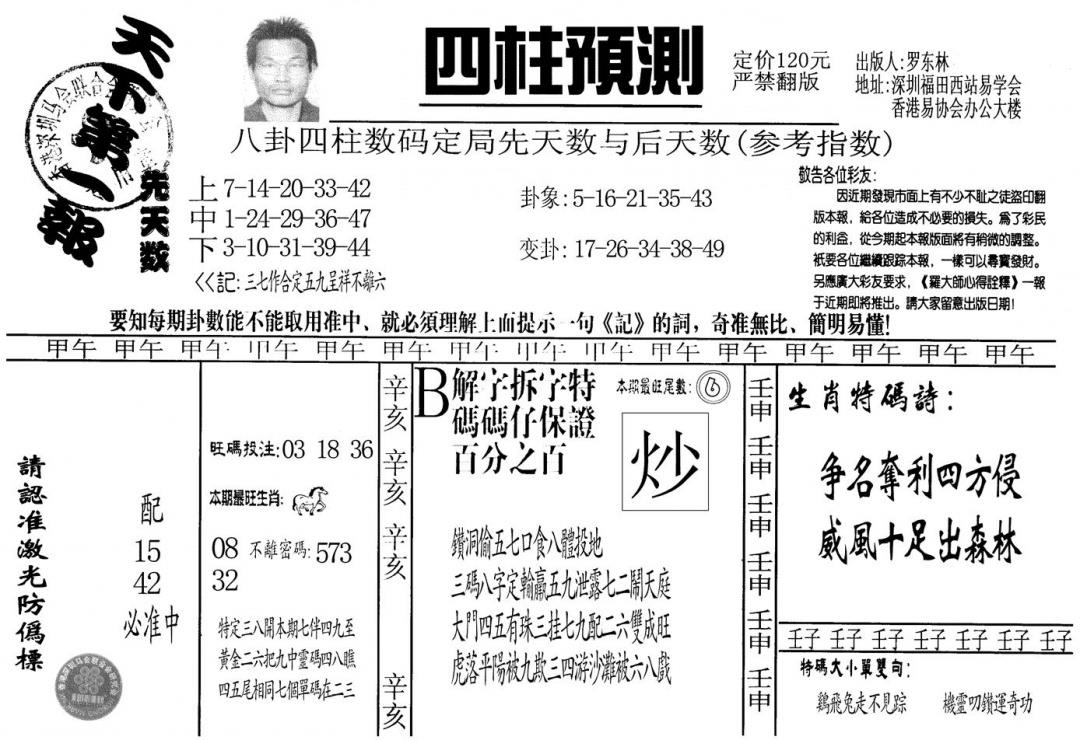 天下第一報
四柱預測
定价120元
严禁翻版
出版人:罗东林
地址:深圳福田西站易学会
香港易协会办公大楼
八卦四柱数码定局先天数与后天数(参考指数)
先天数
上 7-14-20-33-42
中 1-24-29-36-47
下 3-10-31-39-44
<<記:三七作合定五九呈祥不離六
卦象:5-16-21-35-43
变卦:17-26-34-38-49
敬告各位彩友:
因近期發現市面上有不少不耻之徒盜印翻
版本報,給各位造成不必要的損失。爲了彩民
的利益,從今期起本報版面將有稍微的調整。
衹要各位繼續跟踪本報,一樣可以尋寶發財。
另應廣大彩友要求,《羅大師心得詮釋》一報
于近期即將推出。請大家留意出版日期!
要知每期卦數能不能取用准中、就必須理解上面提示一句《記》的詞,奇准無比、簡明易懂!
甲午 甲午 甲午 甲午 甲午 甲午 甲午 甲午 甲午 甲午 甲午 甲午 甲午 甲午 甲午
請認准激光防僞標
配
15
42
必准中
旺碼投注:03 18 36
本期最旺生肖:
08 不離密碼:573
32
特定三八開本期七伴四九至
黃金二六把九中靈碼四八瞧
四五尾相同七個單碼在二三
辛亥
辛亥
辛亥
辛亥
B 解字拆字特
碼碼仔保證
百分之百
本期最旺尾數:6
炒
鑽洞偷五七口食八體投地
三碼八字定輸贏五九泄露七二鬧天庭
大門四五有珠三挂七九配二六雙成旺
虎落平陽被九欺三四游沙灘被六八戲
壬申
壬申
壬申
壬申
壬申
壬申
生肖特碼詩:
争名奪利四方侵
威風十足出森林
壬子 壬子 壬子 壬子 壬子 壬子 壬子
特碼大小單雙句:
鷄飛兔走不見踪 機靈叨鑽運奇功